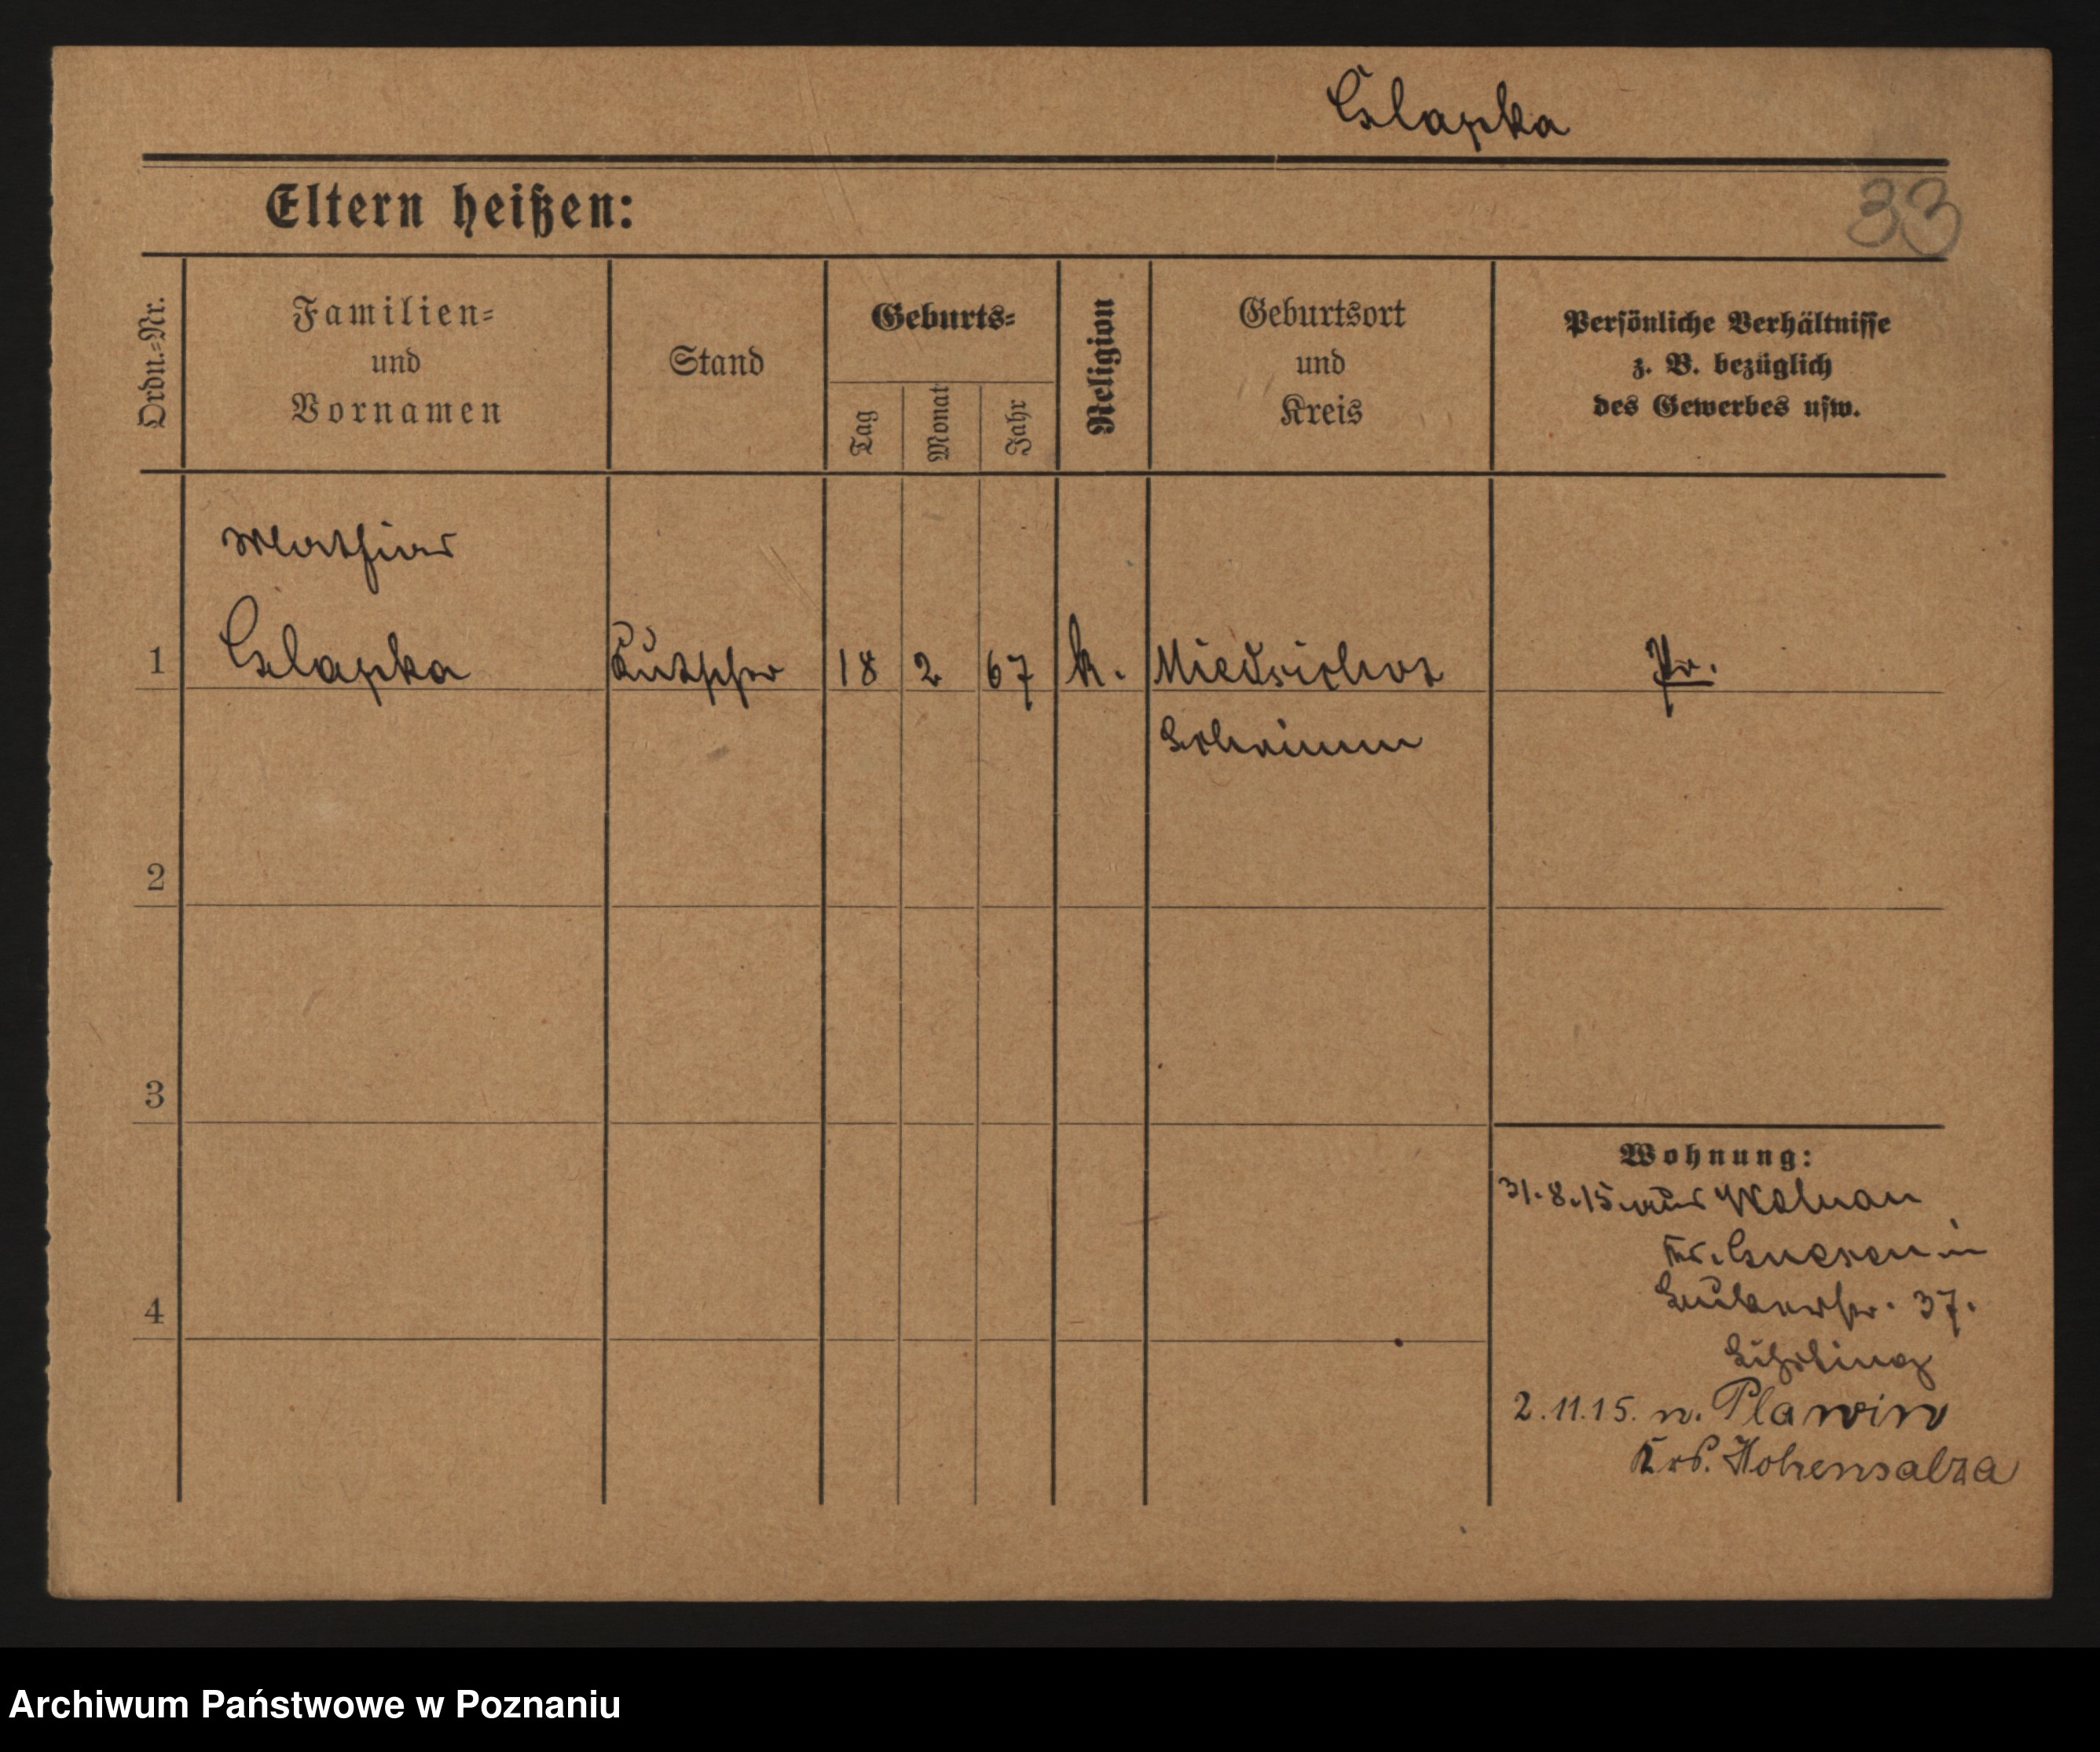 Cslapka
Eltern heißen:
33
Ordn.-Nr.
Familien-
und
Vornamen
Stand
Geburts-
Tag
Monat
Jahr
Religion
Geburtsort
und
Kreis
Persönliche Verhältnisse
z. B. bezüglich
des Gewerbes usw.
Mathias
1 Cslapka Kutscher 18 2 67 k. Pr.
Schrimm
2
3
4
Wohnung:
31.8.15 aus
Kr. Gnesen in
37.
2.11.15. n. Plawin
Krs. Hohensalza
Archiwum Państwowe w Poznaniu